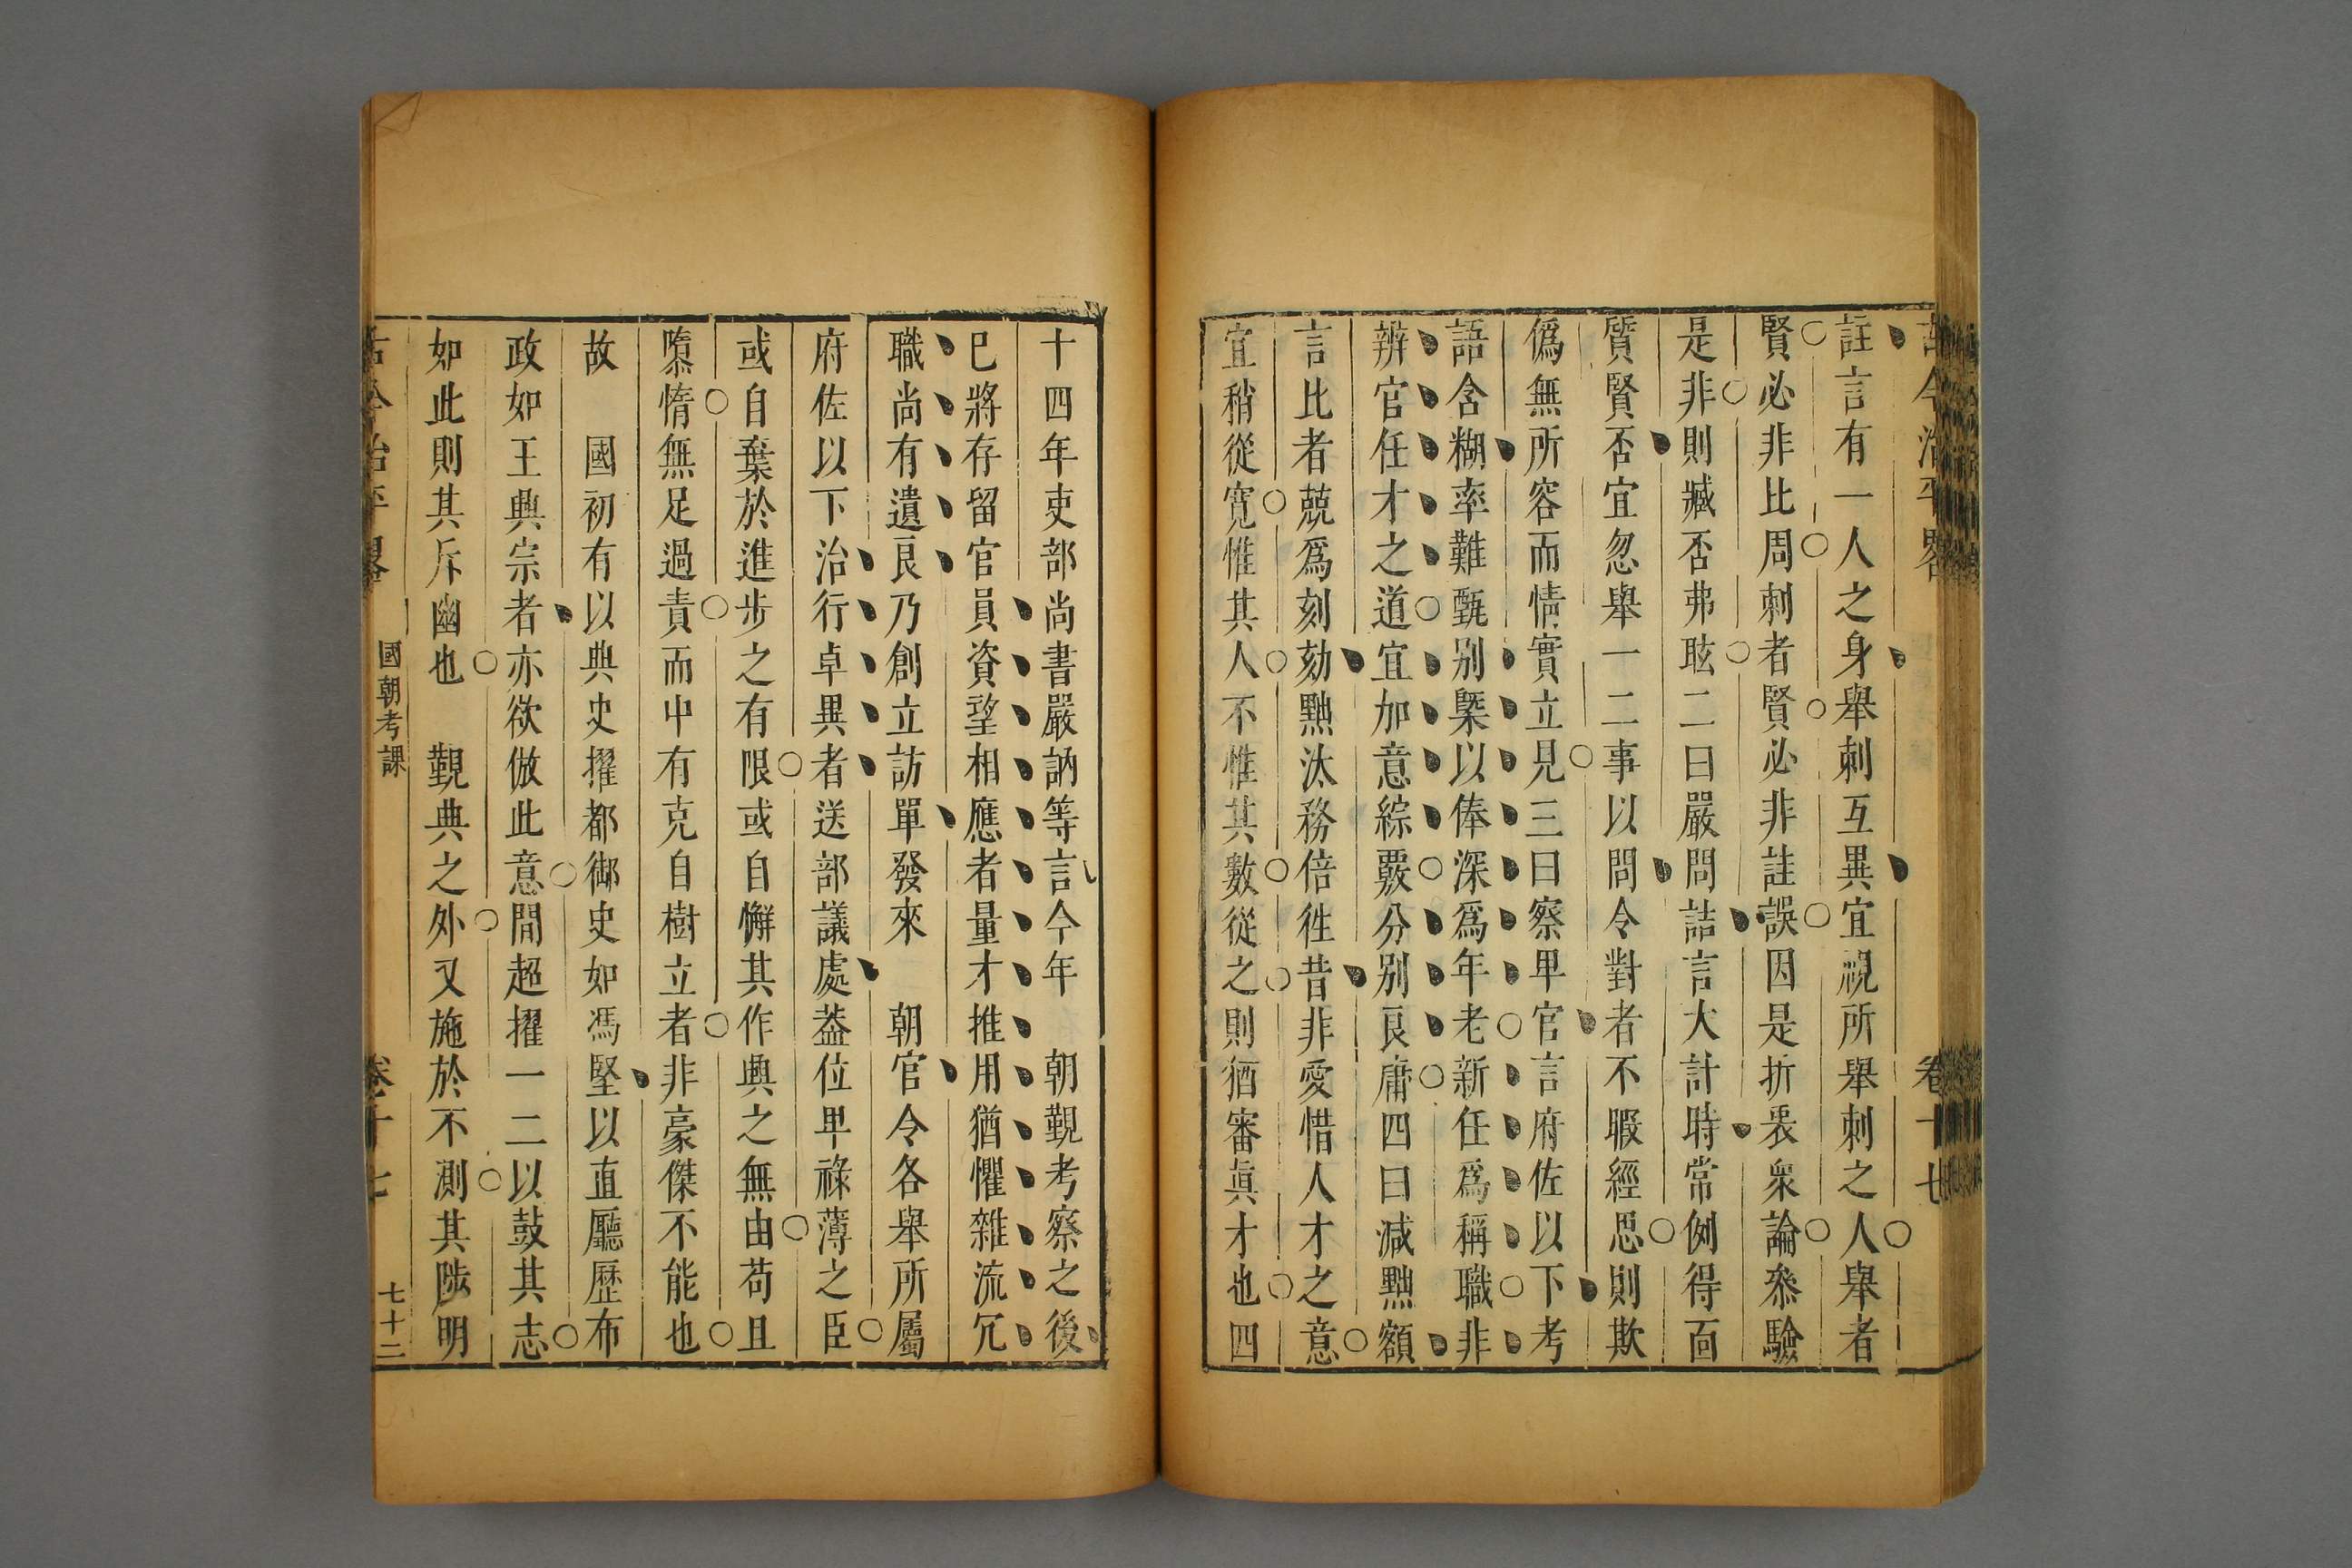 古今治平畧 卷十七
註言有一人之身舉刺互異宜視所舉刺之人舉者
賢必非比周刺者賢必非詿誤因是折衷衆論叅驗
是非則臧否弗眩二曰嚴問詰言大計時常例得面
質賢否宜忽舉一二事以問令對者不暇經思則欺
僞無所容而情實立見三曰察卑官言府佐以下考
語含糊率難甄别槩以俸深爲年老新任爲稱職非
辨官任才之道宜加意綜覈分别良庸四曰減黜額
言比者兢爲刻劾黜汰務倍徃昔非愛惜人才之意
宜稍從寬惟其人不惟其數從之則猶審眞才也四
十四年吏部尚書嚴訥等言今年 朝覲考察之後
已將存留官員資望相應者量才推用猶懼雜流冗
職尚有遺良乃創立訪單發來 朝官令各舉所屬
府佐以下治行卓異者送部議處葢位卑祿薄之臣
或自棄於進步之有限或自懈其作興之無由苟且
隳惰無足過責而中有克自樹立者非豪傑不能也
故 國初有以典史擢都御史如馮堅以直廳歷布
政如王興宗者亦欲倣此意間超擢一二以鼓其志
如此則其斥幽也 覲典之外又施於不測其陟明
古今治平畧 國朝考課 卷十七 七十二